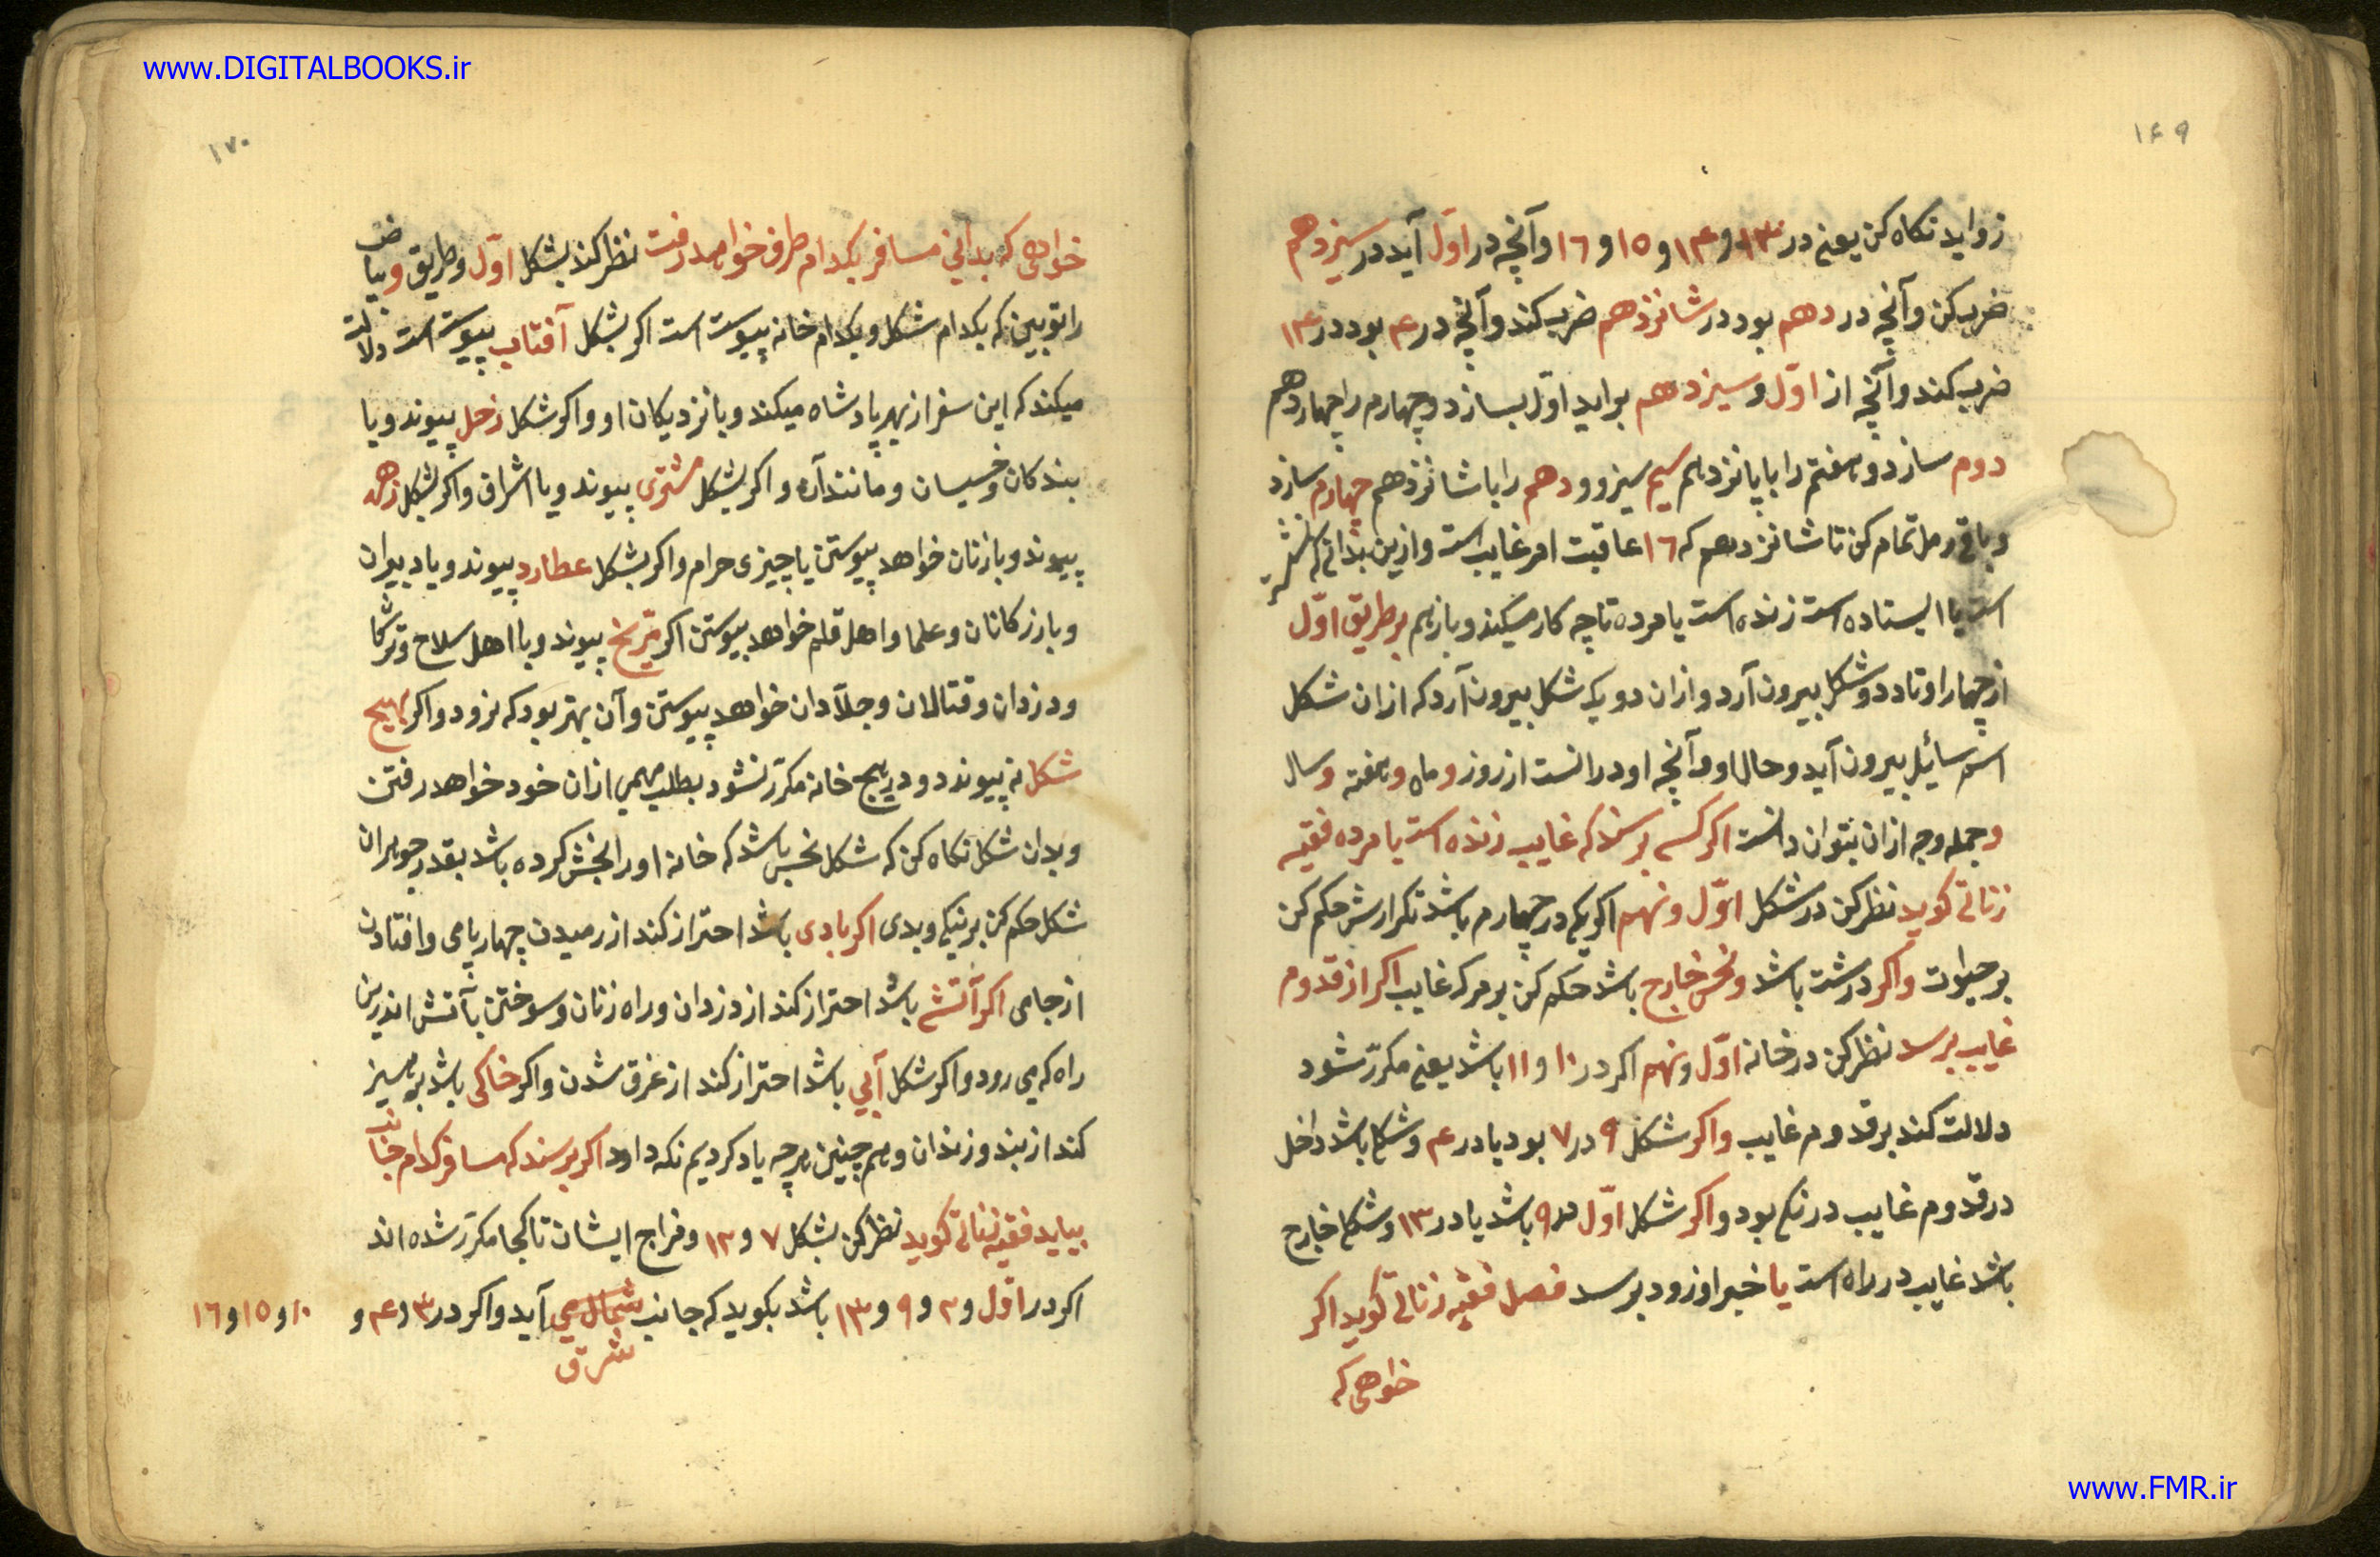 www.DIGITALBOOKS.ir
۱۶۹
زواید نکاه کن یعنی در ۱۳ و ۱۴ و ۱۵ و ۱۶ و آنچه در اول آید در سیزدهم
ضرب کن و آنچه در دهم بود در شانزدهم ضرب کند و آنچه در ۴ بود در ۱۴
ضرب کند و آنچه از اوّل و سیزدهم براید اوّل بسازد و چهارم را چهاردهم
دوم سازد و هفتم را با پانزدهم سیم سیزو و دهم را با شانزدهم چهارم سازد
و باقی رمل تمام کن تا شانزدهم که ۱۶ عاقبت امر غایب است و ازین بدانی که
است یا ایستاده است زنده است یا مرده تا چه کار میکند و بازهم بر طریق اوّل
از چهار اوتاد دو شکل بیرون آرد و ازان دو یک شکل بیرون آرد که ازان شکل
اسم سائیل بیرون آید و حال او و آنچه او در انست از روز و ماه و هفته و سال
و جمله وجه ازان بتوان دانست اکر کسی پرسد که غایب زنده است یا مرده فقیه
زناتی کوید نظر کن در شکل اوّل و نهم اکر یکی در چهارم باشد تکرارش حکم کن
بر حیوات و اکر درشت باشد و نحس خارج باشد حکم کن بر مرک غایب اکر از قدوم
غایب پرسد نظر کن در خانه اوّل و نهم اکر در ۱۰ و ۱۱ باشد یعنی مکرّر شود
دلالت کند بر قدوم غایب و اکر شکل ۹ در ۷ بود یا در ۴ و شکل باشد داخل
در قدوم غایب درنکی بود و اکر شکل اوّل در ۹ باشد یا در ۱۳ و شکل خارج
باشد غایب در راه است یا خبر او زود برسد فصل فقیه زناتی کوید اکر
خواهی که
۱۷۰
خواهی که بدانی مسافر بکدام طرف خواهد رفت نظر کند بشکل اوّل و طریق و بیاض
را تو ببین که بکدام شکل و بکدام خانه پیوست است اکر بشکل آفتاب پیوست است دلالت
میکند که این سفر از بهر پادشاه میکند و با نزدیکان او و اکر شکل زحل پیوند و با
بندکان و خسیسان و مانند آن و اکر بشکل مشتری پیوند و با اشراف و اکر بشکل زهره
پیوند و با زنان خواهد پیوستن یا چیزی حرام و اکر بشکل عطارد پیوند و با دبیران
و بازرکانان و علما و اهل قلم خواهد پیوستن اکر مرّیخ پیوند و با اهل سلاح و ترکان
و دزدان و قتالان و جلّادان خواهد پیوستن و آن بهتر بود که نرود و اکر بهیچ
شکل نه پیوندد و در هیچ خانه مکرّر نشود بطلب مهمی ازان خود خواهد رفتن
و بدان شکل نکاه کن که شکل نحس باشد که خانه او را بخش کرده باشد بقدر جوهر ان
شکل حکم کن بر نیکی و بدی اکر بادی باشد احتراز کند از رمیدن چهارپای و افتادن
از جای اکر آتشی باشد احتراز کند از دزدان و راه زنان و سوختن بآتش اندرین
راه که می رود و اکر شکل آبی باشد احتراز کند از غرق شدن و اکر خاکی باشد پرهیز
کند از بند و زندان و هم چنین هرچه یاد کردیم نکه دارد اکر پرسند که مسافر کدام جانب
بیاید فقیه زناتی کوید نظر کن بشکل ۷ و ۱۲ و مزاج ایشان تا کجا مکرّر شده اند
اکر در اوّل و ۲ و ۹ و ۱۳ باشد بکوید که جانب شمال می آید و اکر در ۳ و ۴ و ۱۰ و ۱۵ و ۱۶
شرق
www.FMR.ir